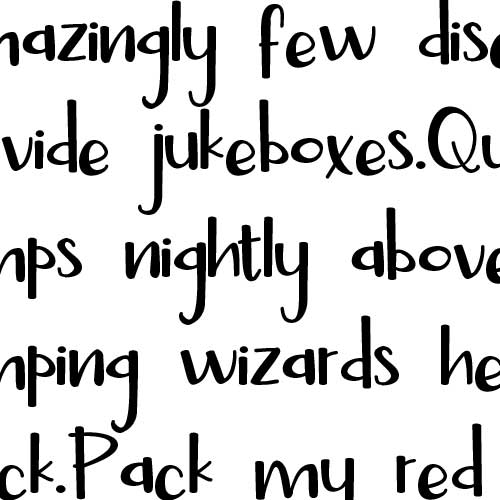 mazingly few disc
ovide jukeboxes.Qu
mps nightly above
mping wizards he
ck.Pack my red